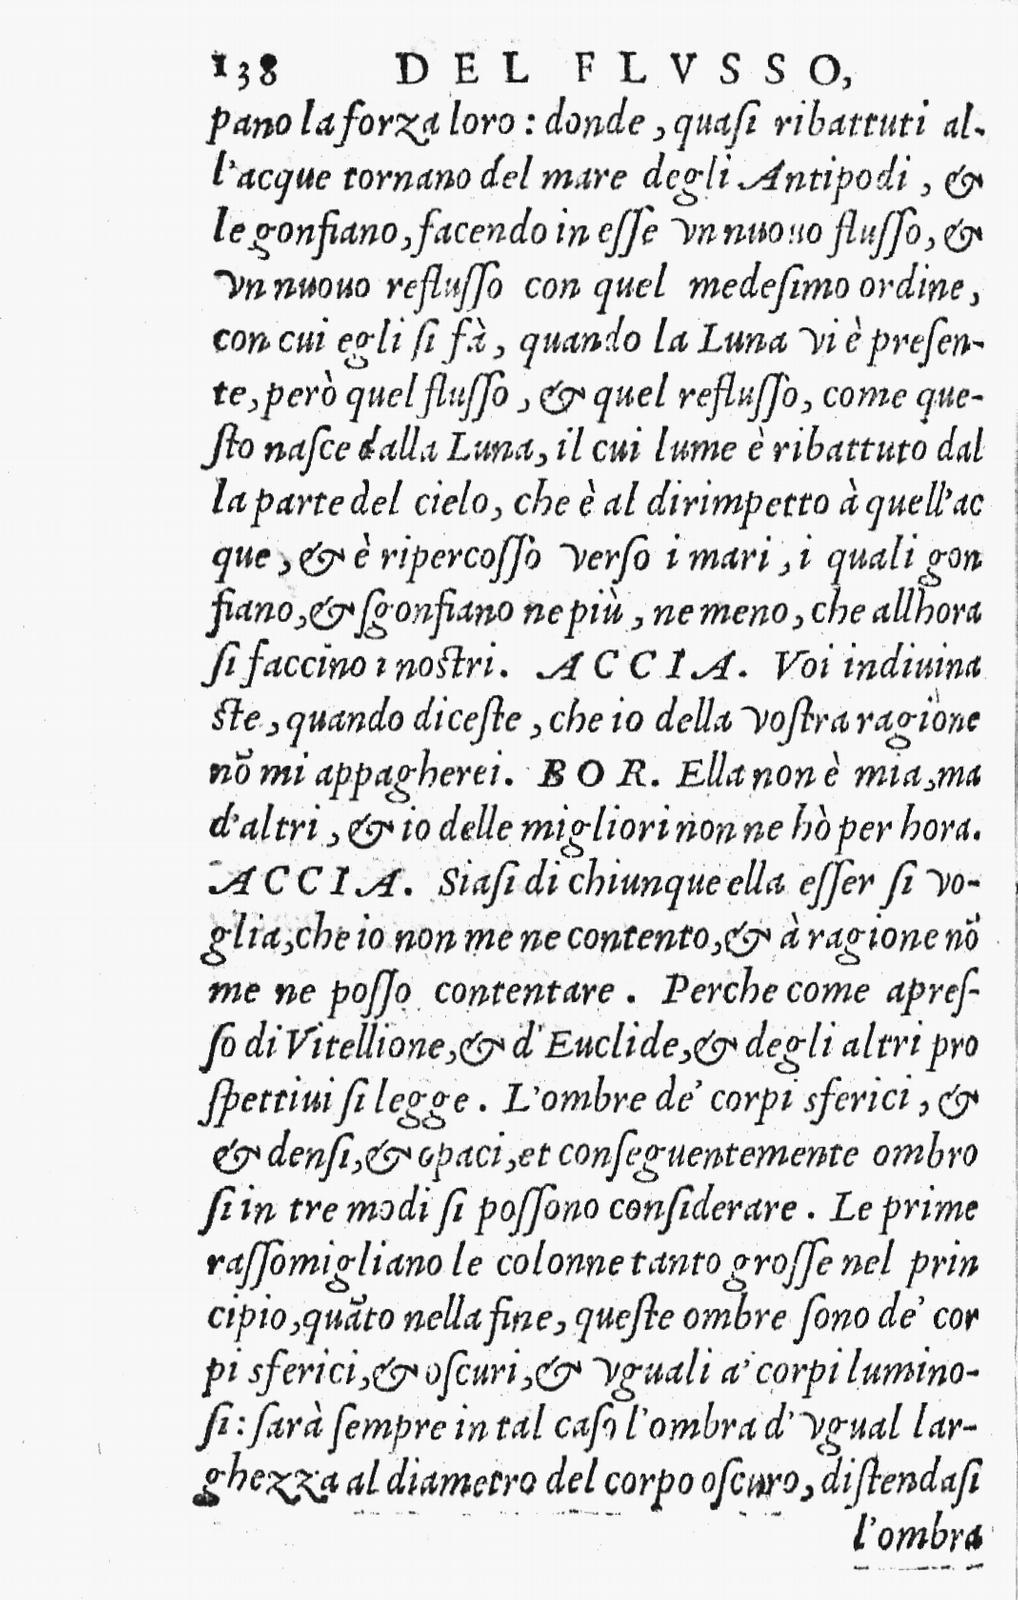 138 DEL FLVSSO,
pano la forza loro : donde , quaſi ribattuti al-
l'acque tornano del mare degli Antipodi , &
le gonfiano, facendo in eſſe vn nuouo fluſſo, &
vn nuouo refluſſo con quel medeſimo ordine,
con cui egli ſi fà, quando la Luna vi è preſen-
te, però quel fluſſo , & quel refluſſo, come que-
ſto naſce dalla Luna, il cui lume è ribattuto dal
la parte del cielo, che è al dirimpetto à quell'ac
que , & è ripercoſſo verſo i mari , i quali gon
fiano, & ſgonfiano ne più , ne meno, che allhora
ſi faccino i noſtri. ACCIA. Voi indiuina
ſte , quando diceſte , che io della voſtra ragione
nõ mi appagherei. BOR. Ella non è mia, ma
d'altri , & io delle migliori non ne hò per hora.
ACCIA. Siaſi di chiunque ella eſſer ſi vo-
glia, che io non me ne contento, & à ragione nõ
me ne poſſo contentare . Perche come apreſ-
ſo di Vitellione, & d'Euclide, & degli altri pro
ſpettiui ſi legge . L'ombre de' corpi sferici , &
& denſi, & opaci, et conſeguentemente ombro
ſi in tre modi ſi poſſono conſiderare . Le prime
raſſomigliano le colonne tanto groſſe nel prin
cipio, quãto nella fine, queſte ombre ſono de' cor
pi sferici, & oſcuri, & vguali a' corpi lumino-
ſi : ſarà ſempre in tal caſo l'ombra d' vgual lar-
ghezza al diametro del corpo oſcuro, diſtendaſi
l'ombra